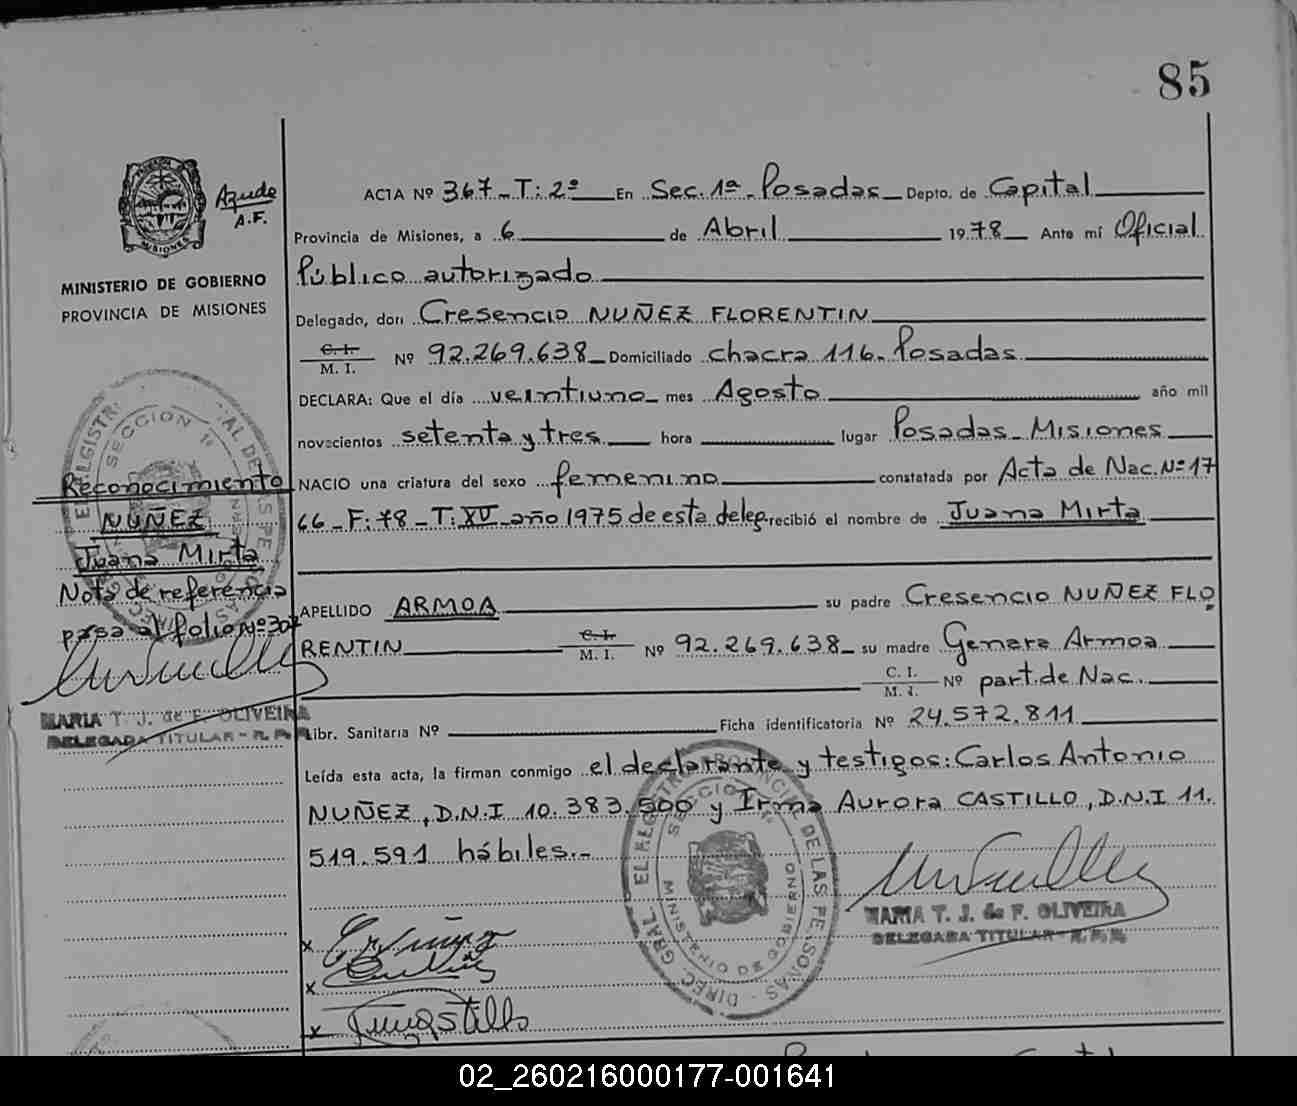 85
Ayude
A.F.
MINISTERIO DE GOBIERNO
PROVINCIA DE MISIONES
ACTA Nº 367-T: 2º En Sec. 1ª - Posadas Depto. de Capital
Provincia de Misiones, a 6 de Abril 1978 Ante mí Oficial
Público autorizado
Delegado, don Cresencio NUÑEZ FLORENTIN
C. I.
M. I. Nº 92.269.638 Domiciliado chacra 116. Posadas
DECLARA: Que el día veintiuno mes Agosto año mil
novecientos setenta y tres hora lugar Posadas - Misiones
NACIO una criatura del sexo femenino constatada por Acta de Nac. Nº 17
66 - F: 78 - T: XV año 1975 de esta deleg recibió el nombre de Juana Mirta
APELLIDO ARMOA su padre Cresencio NUÑEZ FLO
RENTIN C. I.
M. I. Nº 92.269.638 su madre Genara Armoa
C. I.
M. I. Nº part. de Nac.
Libr. Sanitaria Nº Ficha identificatoria Nº 24.572.811
Leída esta acta, la firman conmigo el declarante y testigos: Carlos Antonio
NUÑEZ, D.N.I 10.383.500 y Irma Aurora CASTILLO, D.N.I 11.
519.591 hábiles.-
Reconocimiento
NUÑEZ
Juana Mirta
Nota de referencia
pasa al folio Nº 307
MARIA T. J. de F. OLIVEIRA
DELEGADA TITULAR - R. P. P.
SECCION 1ª
DIREC. GRAL. EL REGISTRO PROVINCIAL DE LAS PERSONAS
SECCION 1ª
MINISTERIO DE GOBIERNO
MARIA T. J. de F. OLIVEIRA
DELEGADA TITULAR - R. P. P.
x
x
x
02_260216000177-001641